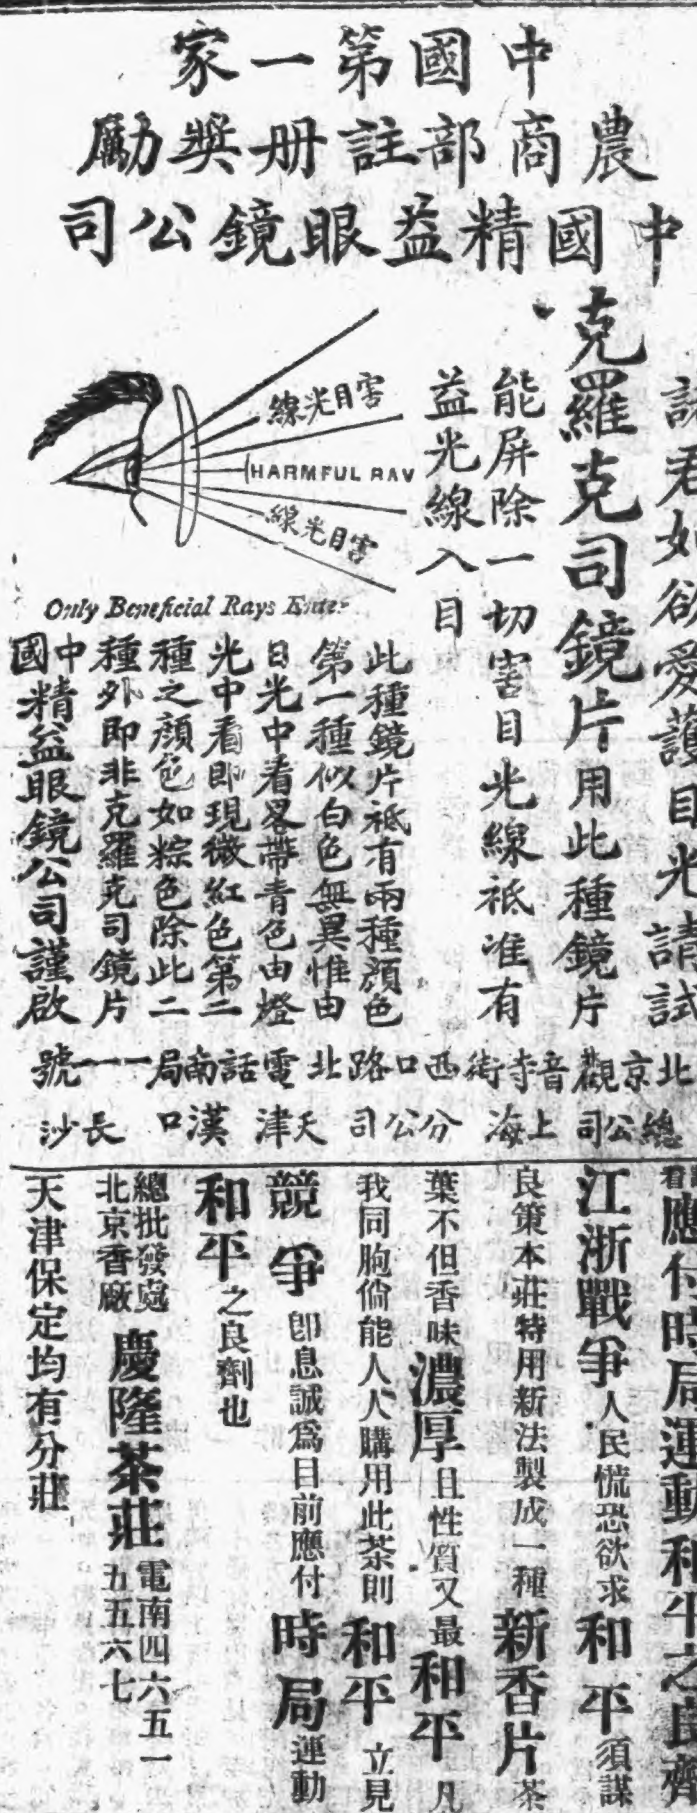 中國第一家
農商部註册獎勵
中國精益眼鏡公司
諸君如欲愛護目光請試
克羅克司鏡片用此種鏡片
能屏除一切害目光線祗准有
益光線入目
害目光線
HARMFUL RAY
害目光線
Only Beneficial Rays Enter
此種鏡片祗有兩種顏色
第一種似白色無異惟由
日光中看畧帶青色由燈
光中看即現微紅色第二
種之顏色如粽色除此二
種外即非克羅克司鏡片
中國精益眼鏡公司謹啟
北京觀音寺街西口路北電話南局一一一號
總公司上海分公司天津漢口長沙
看
應付時局運動和平之良劑
江浙戰爭人民慌恐欲求和平須謀
良策本莊特用新法製成一種新香片茶
葉不但香味濃厚且性質又最和平凡
我同胞倘能人人購用此茶則和平立見
競爭卽息誠爲目前應付時局運動
和平之良劑也
總批發處
北京香廠
慶隆茶莊
電南四六五一
五五六七
天津保定均有分莊